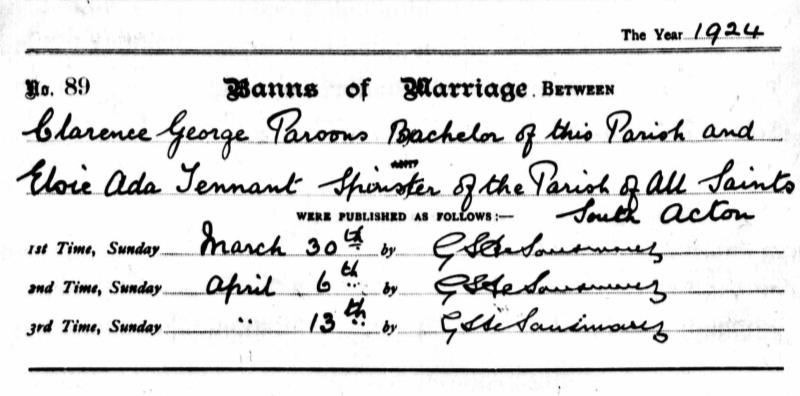 The Year 1924
No. 89 Banns of Marriage BETWEEN
Clarence George Parsons Bachelor of this Parish and
Elsie Ada Tennant Spinster of the Parish of All Saints
WERE PUBLISHED AS FOLLOWS:— South Acton
1st Time, Sunday March 30th by G S de Sausmarez
2nd Time, Sunday April 6th by G S de Sausmarez
3rd Time, Sunday " 13th by G S de Sausmarez